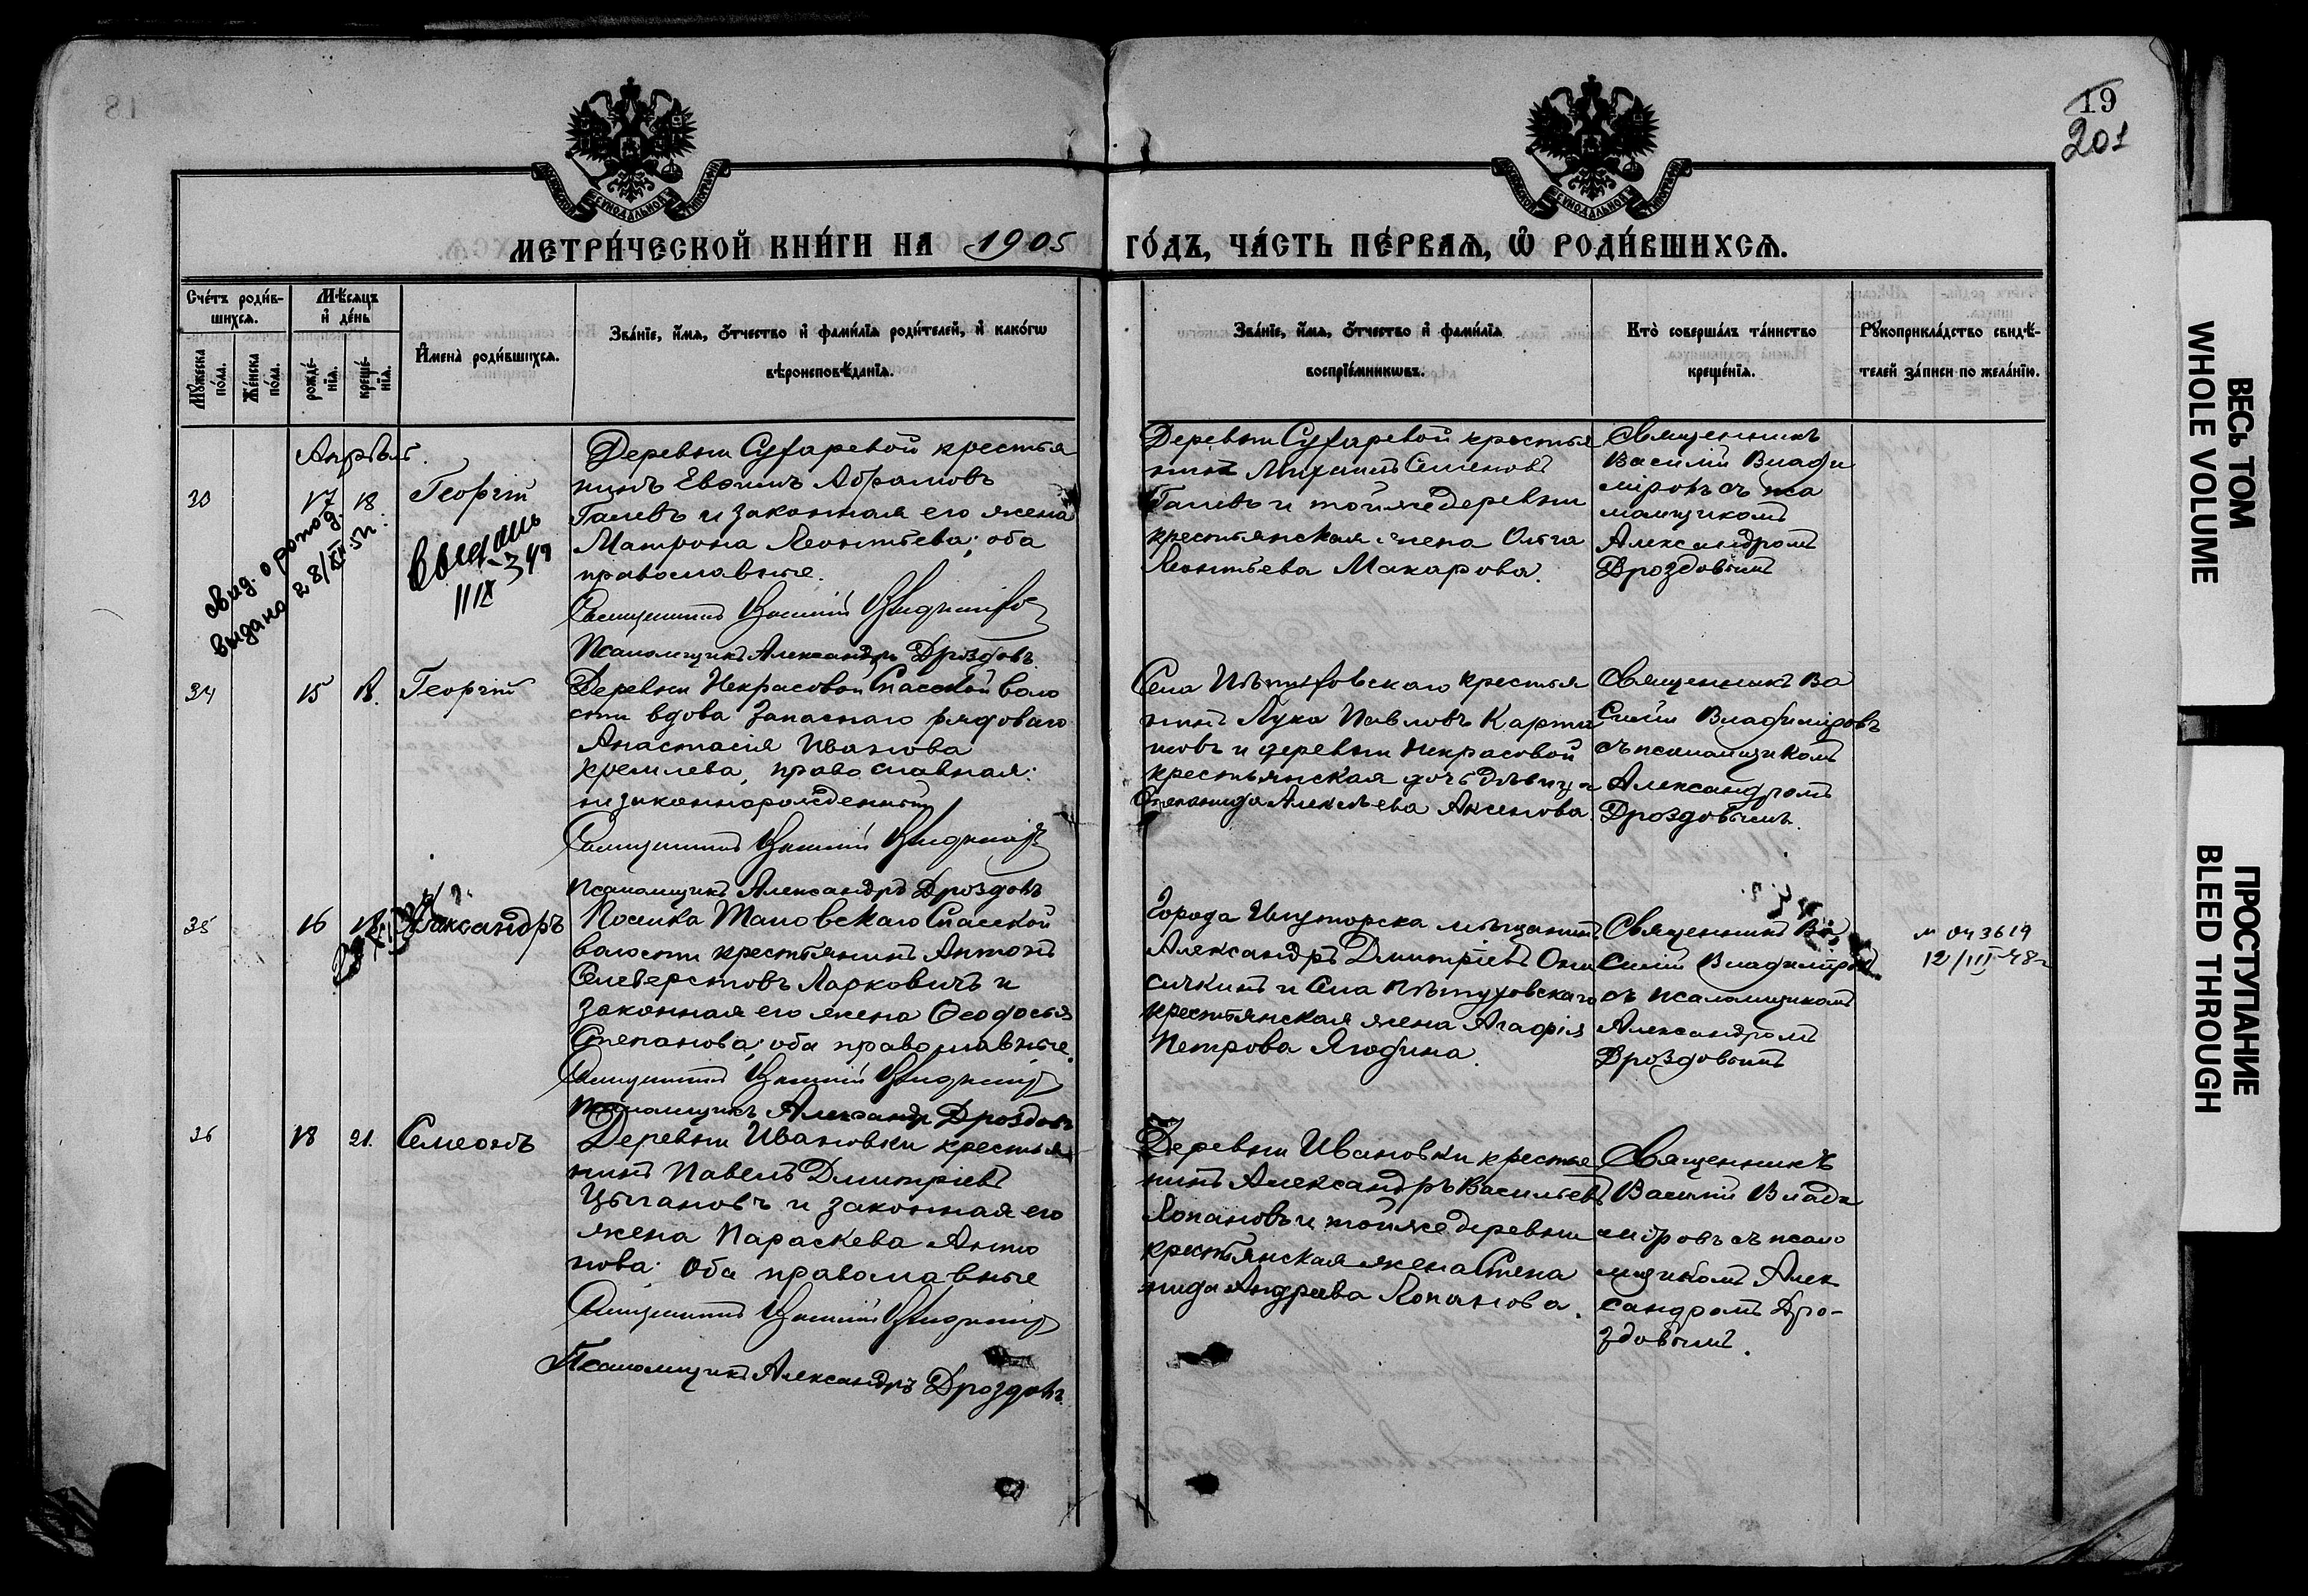 19
201
МЕТРИ́ЧЕСКОЙ КНИ́ГИ НА 1905 ГО́ДЪ, ЧА́СТЬ ПЕ́РВАѦ, Ѿ РОДИ́ВШИХСѦ.
Сче́тъ роди́в-
шихсѧ.
Мѣ́сѧцъ
и҆ де́нь
Мꙋ́жеска по́ла.
Же́нска по́ла.
рожде́-
нїѧ.
креще́-
нїѧ.
И҆мена̀ роди́вшихсѧ.
Зва́нїе, и҆́мѧ, ѻ҆́тчество и҆ фами́лїѧ роди́телей, и҆ како́гѡ
вѣроисповѣ́данїѧ.
Зва́нїе, и҆́мѧ, ѻ҆́тчество и҆ фами́лїѧ
воспрїе́мникѡвъ.
Кто̀ соверша́лъ та́инство
креще́нїѧ.
Рꙋкоприкла́дство свидѣ́-
телей за́писи по жела́нїю.
Апрѣль.
17 18
Георгій
Деревни Сухаревой крестья
нинъ Евѳимъ Абрамовъ
Галевъ и законная его жена
Матрона Леонтьева; оба
православные.
Священникъ Василій Владиміровъ
Псаломщикъ Александръ Дроздовъ
Деревни Сухаревой крестья
нинъ Михаилъ Семеновъ
Галевъ и тойже деревни
крестьянская жена Ольга
Леонтьева Макарова.
Священникъ
Василій Влади
міровъ съ пса
ломщикомъ
Александромъ
Дроздовымъ
свид. о рожд.
выдано 28/XII
выдань
34 15 18. Георгій
Деревни Некрасовой Спасской воло
сти вдова запаснаго рядоваго
Анастасія Иванова
Кремлева, православная:
незаконнорожденный
Священникъ Василій Владиміровъ
Псаломщикъ Александръ Дроздовъ
Села Пѣтуховскаго крестья
нинъ Лука Павловъ
и деревни Некрасовой
крестьянская дочь дѣвица
Степанида Алексѣева Аксенова
Священникъ Ва
силій Владиміровъ
съ псаломщикомъ
Александромъ
Дроздовымъ.
35 16 18 Александръ
Поселка Таловскаго Спасской
волости крестьянинъ Антонъ
Селеверстовъ Ларковичъ и
законная его жена Ѳеодосья
Степанова; оба православные.
Священникъ Василій Владиміровъ
Псаломщикъ Александръ Дроздовъ
Города мѣщанинъ
Александръ Дмитріевъ Они
сичкинъ и Села Пѣтуховскаго
крестьянская жена Агафія
Петрова Ягодина.
Священникъ Ва
силій Владиміровъ
съ псаломщикомъ
Александромъ
Дроздовымъ
№ 043619
12/III-48г
36 18 21. Симеонъ
Деревни Ивановки крестья
нинъ Павелъ Дмитріевъ
Цыгановъ и законная его
жена Параскева Анто
нова: Оба православные
Священникъ Василій Владиміровъ
Псаломщикъ Александръ Дроздовъ.
Деревни Ивановки крестья
нинъ Александръ Васильевъ
Лопановъ и тойже деревни
крестьянская жена Степа
нида Андреева Лопанова.
Священникъ
Василій Влади
міровъ съ псало
мщикомъ Алек
сандромъ Дро-
здовымъ.
ВЕСЬ ТОМ
WHOLE VOLUME
ПРОСТУПАНИЕ
BLEED THROUGH